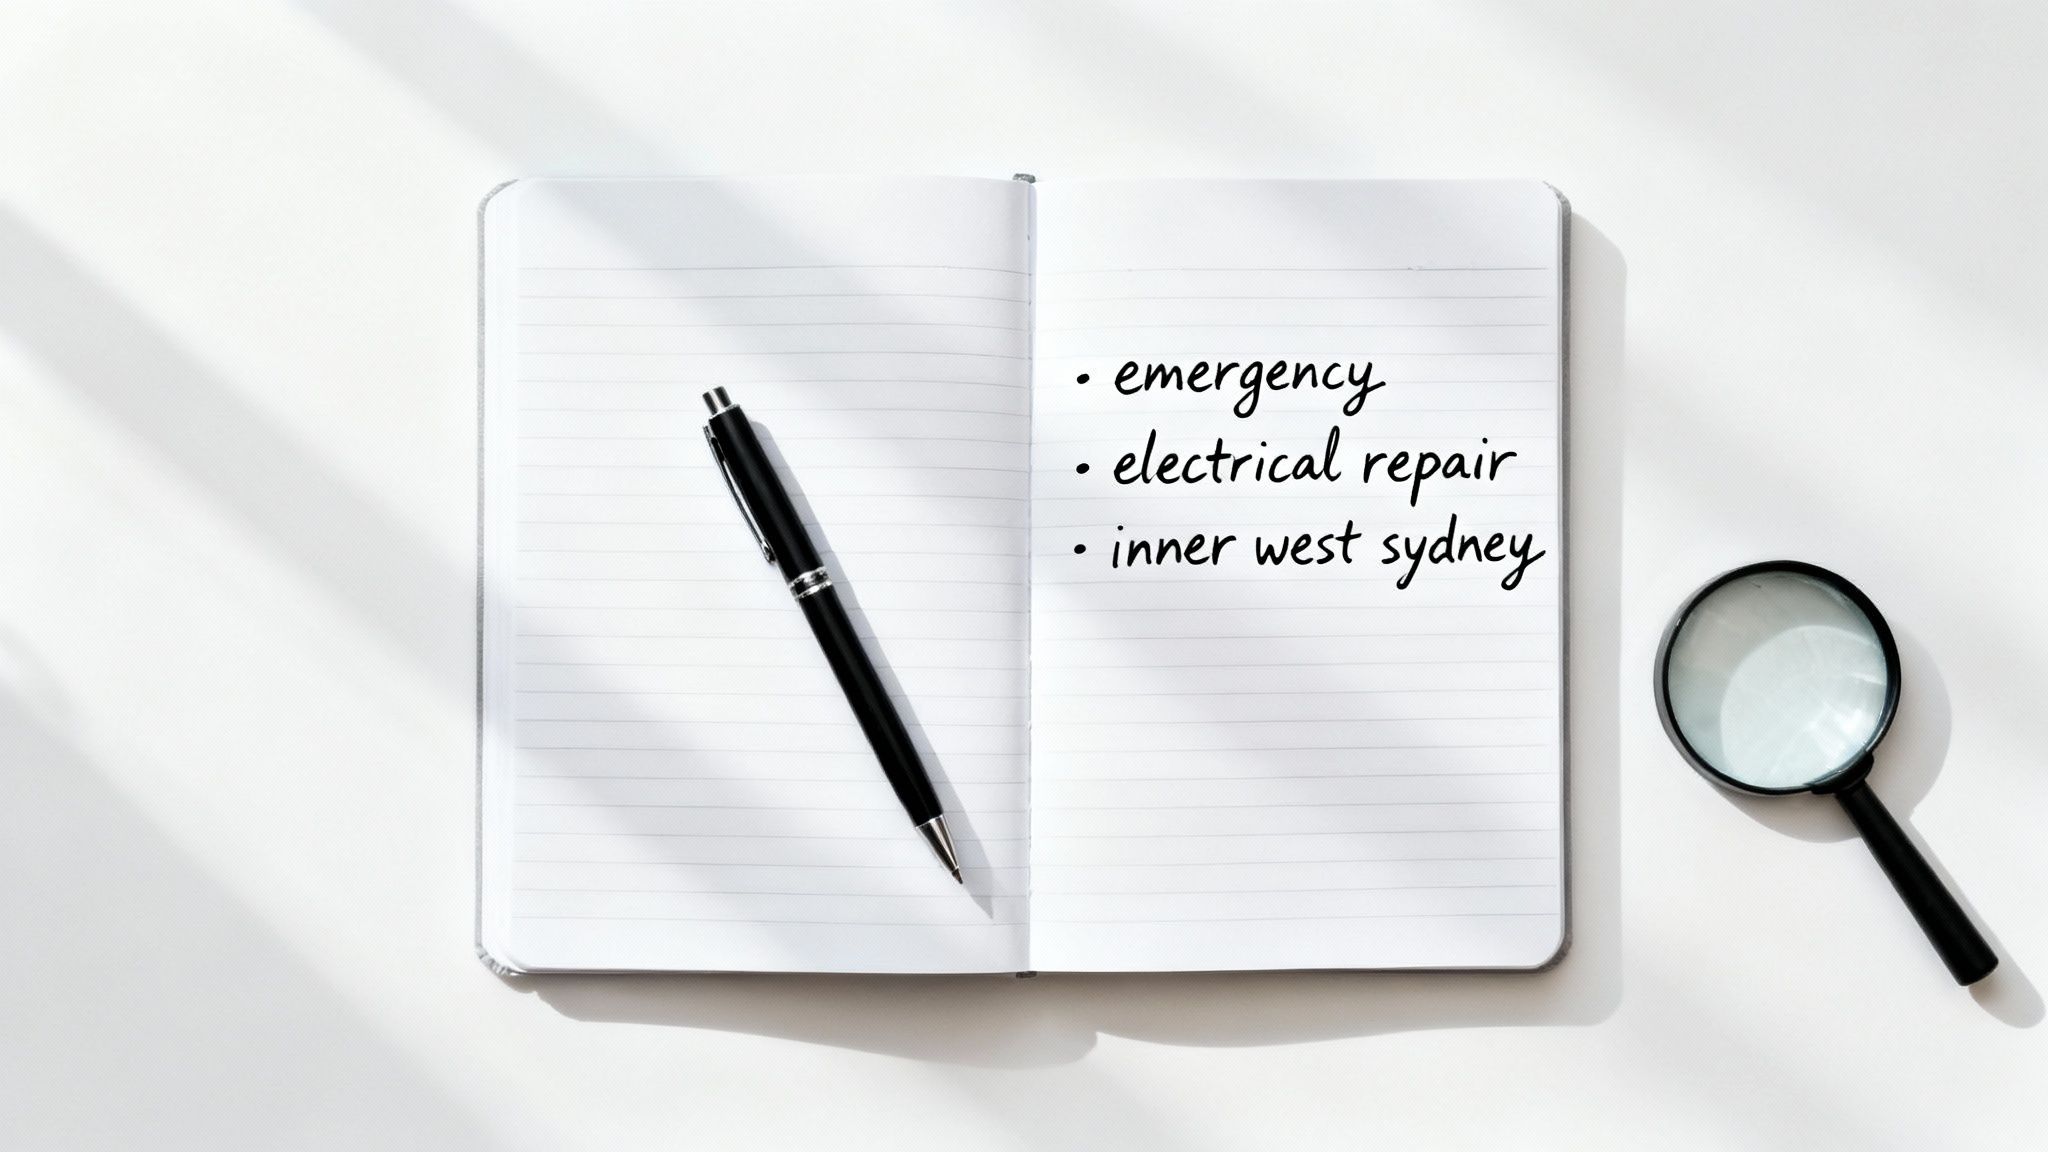 • emergency
• electrical repair
• inner west sydney